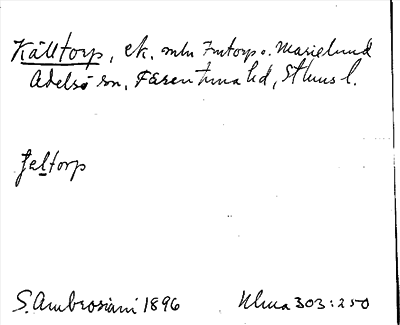 Källtorp, ek. mln Furtorp o. Marielund
Adelsö sn, Färentuna hd, Sthms l.
Jeltorp
S. Ambrosiani 1896 Ulma 303:250